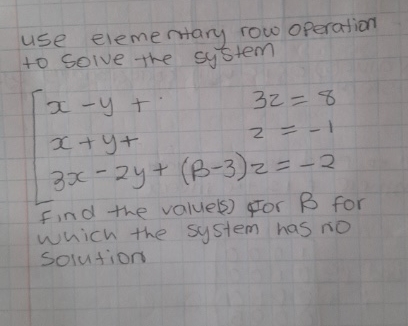 use elementary row operation
to solve the system
x - y + 3z = 8
x + y + z = -1
3x - 2y + (β-3)z = -2
find the value(s) for β for
which the system has no
solution